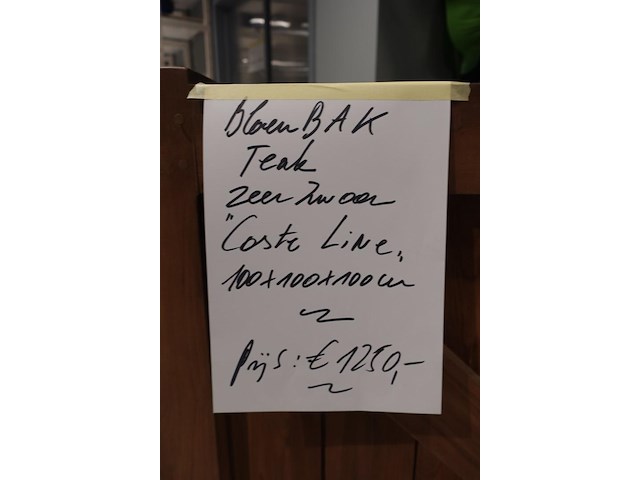 BloemBAK
Teak
zeer zwaar
"Coste Line"
100x100x100cm
Prijs: € 1250,-